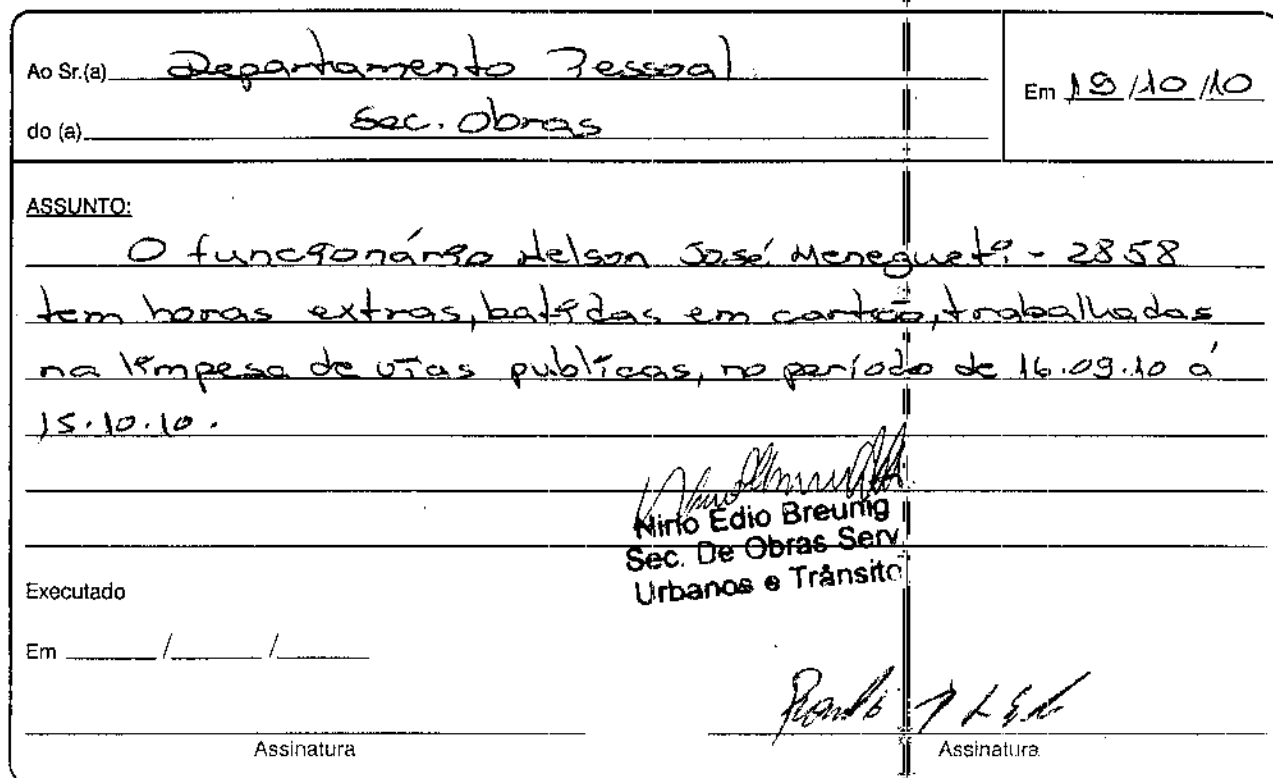 Ao Sr.(a) Departamento Pessoal
Em 19/10/10
do (a) Sec. Obras
ASSUNTO:
O funcionário Nelson José Menegueti - 2858
tem horas extras, batidas em cartão, trabalhadas
na limpesa de vias publicas, no período de 16.09.10 á
15.10.10.
Nirio Edio Breunig
Sec. De Obras Serv
Urbanos e Trânsito
Executado
Em ____/____/____
Assinatura
Assinatura